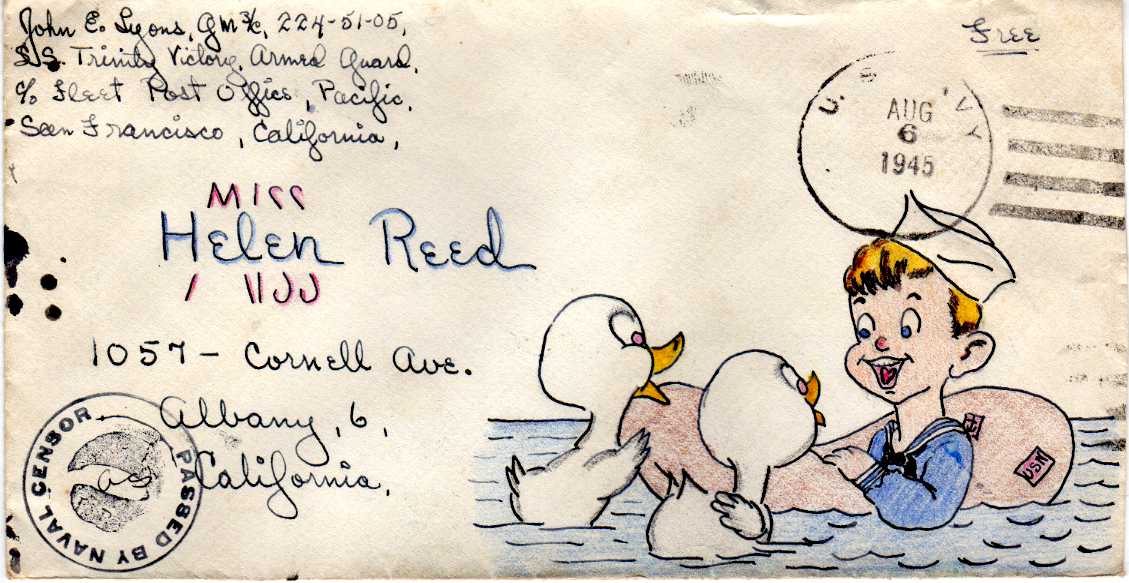 John E. Lyons, GM 3/c, 224-51-05,
S.S. Trinity Victory, Armed Guard,
c/o Fleet Post Office, Pacific,
San Francisco, California,
Free
U. S. NAVY
AUG
6
1945
MISS
Helen Reed
1057 - Cornell Ave.
Albany, 6,
California,
PASSED BY NAVAL CENSOR
USN